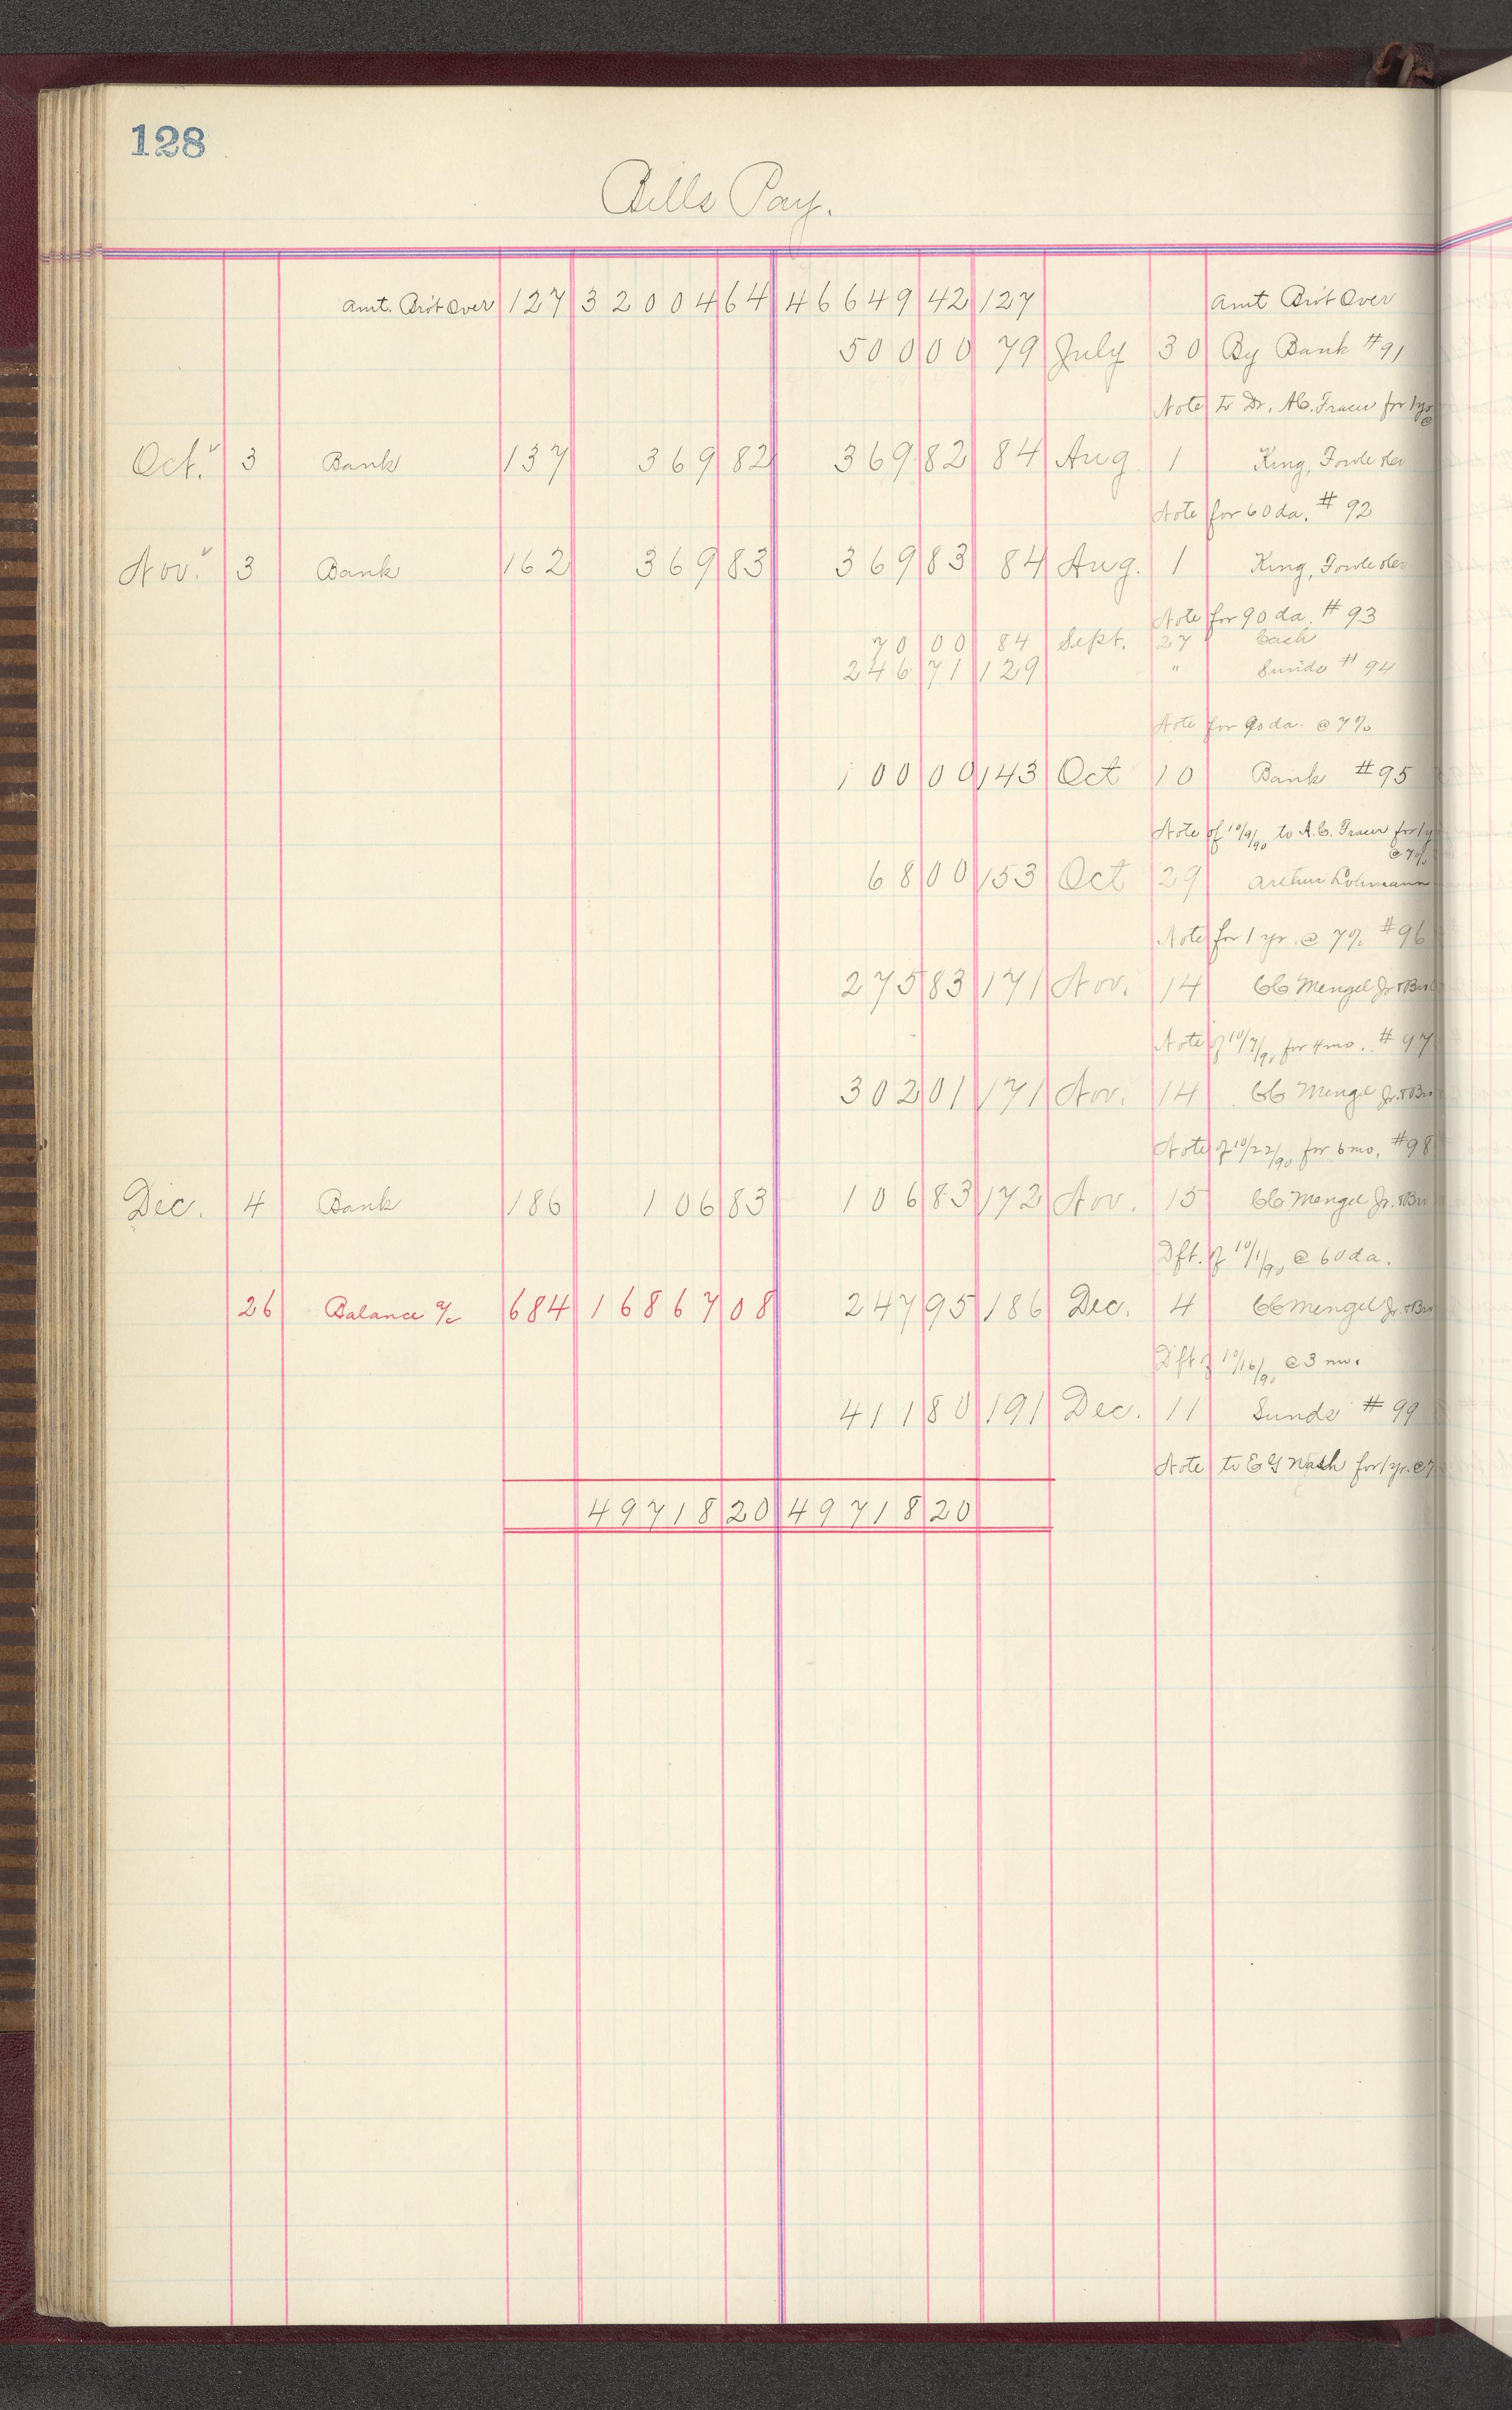 128
Bills Pay.
Amt. Bro't Over 127 32004 64 46649 42 127 Amt Bro't Over
500 00 79 July 30 By Bank #91
Note to Dr. for 1 yr @
Oct. 3 Bank 137 369 82 369 82 84 Aug 1 King,
Note for 60 da. # 92
Nov. 3 Bank 162 369 83 369 83 84 Aug. 1 King,
Note for 90 da. # 93
70 00 84 Sept. 27 Cash
246 71 129 " Sunds # 94
Note for 90 da. @ 7%
100 00 143 Oct 10 Bank #95
Note of 10/9/90 to A.C. for 1 y
@ 7%
68 00 153 Oct 29 Arthur Lohmann
Note for 1 yr. @ 7% #96
275 83 171 Nov. 14 CC Mengel Jr & Bro
Note of 10/7/90 for 4 mo. # 97
302 01 171 Nov. 14 CC Mengel Jr. & Bro
Note of 10/22/90 for 6 mo. #98
Dec. 4 Bank 186 106 83 106 83 172 Nov. 15 CC Mengel Jr. & Bro
Dft. of 10/1/90 @ 60 da.
26 Balance a/c 684 16867 08 247 95 186 Dec. 4 CC Mengel Jr. & Bro
Dft of 10/16/90 @ 3 mo.
411 80 191 Dec. 11 Sunds # 99
Note to E G Nash for 1 yr. @ 7
49718 20 49718 20